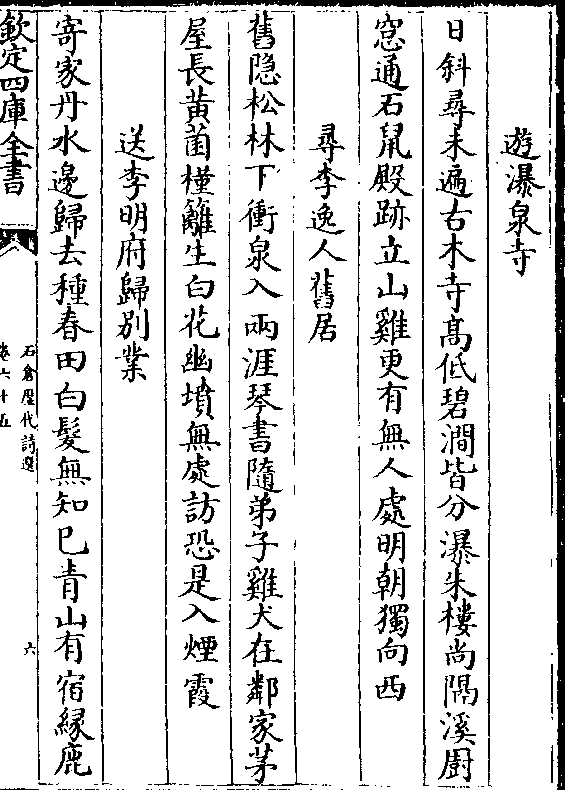 遊瀑泉寺
日斜尋未遍古木寺高低碧澗皆分瀑朱樓尚隔溪厨
窓通石鼠殿跡立山雞更有無人處明朝獨向西
尋李逸人舊居
舊隐松林下衝泉入兩涯琴書隨弟子雞犬在鄰家茅
屋長黄菌槿籬生白花幽墳無處訪恐是入煙霞
送李明府歸别業
寄家丹水邊歸去種春田白髮無知已青山有宿緣鹿
欽定四庫全書
石倉歷代詩選
卷六十五
六